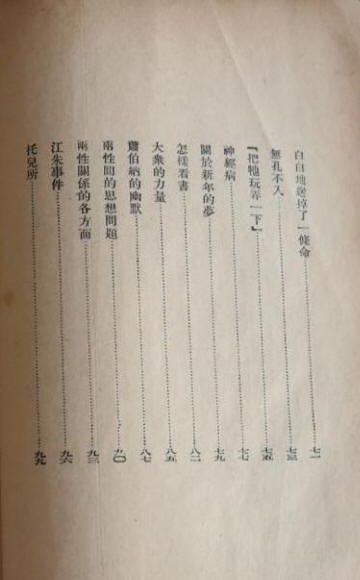 白白地送掉了一條命……七一
無孔不入……七三
「把牠玩弄一下」……七五
神經病……七七
關於新年的夢……七九
怎樣看書……八二
大衆的力量……八五
蕭伯納的幽默……八七
兩性間的思想問題……九〇
兩性關係的各方面……九三
江朱事件……九六
托兒所……九九